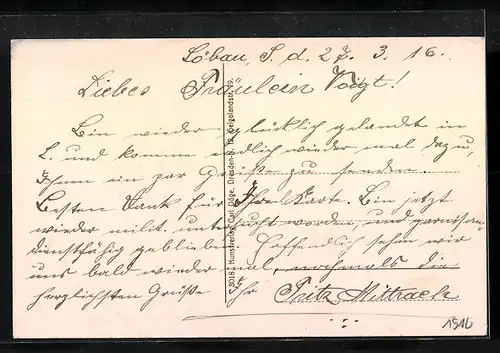 Löbau, S. d. 27. 3. 16.
Liebes Fräulein Voigt!
Bin wieder glücklich gelandet in
L. und komme endlich wieder mal dazu,
Ihnen ein paar Grüße zu senden.
Besten Dank für Ihre Karte. Bin jetzt
wieder milit. untersucht worden, und garnison-
dienstfähig geblieben. Hoffentlich sehen wir
uns bald wieder mal, nochmals die
herzlichsten Grüße Ihr Fritz Mittrach
1916
8018 Kunstverlag Carl Döge, Dresden-N. 12, Helgolandstr. 19.